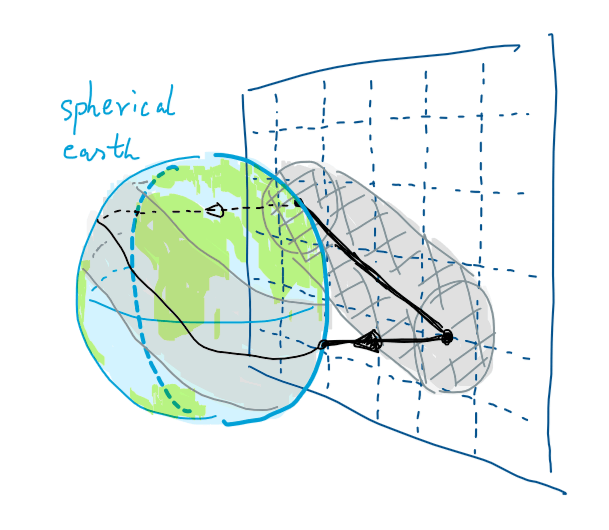 spherical
earth